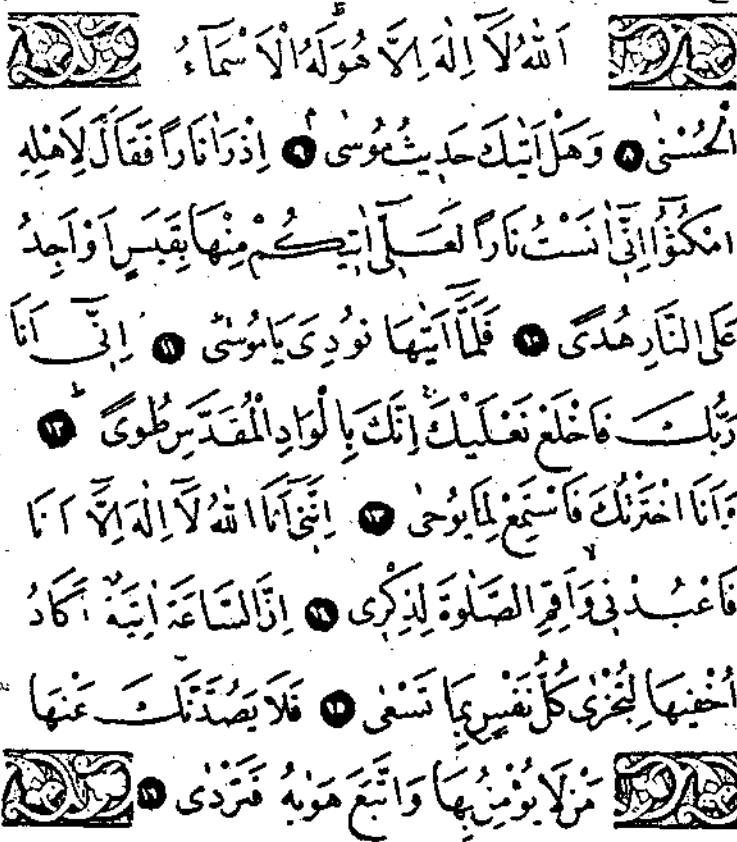 اَللّٰهُ لَآ اِلٰهَ اِلَّا هُوَ لَهُ الْاَسْمَآءُ
الْحُسْنٰى ﴿٨﴾ وَهَلْ اَتٰيكَ حَدِيثُ مُوسٰى ﴿٩﴾ اِذْ رَاٰ نَارًا فَقَالَ لِاَهْلِهِ
امْكُثُوٓا اِنّٓى اٰنَسْتُ نَارًا لَعَلّٓى اٰتِيكُمْ مِنْهَا بِقَبَسٍ اَوْ اَجِدُ
عَلَى النَّارِ هُدًى ﴿١٠﴾ فَلَمَّآ اَتٰيهَا نُودِىَ يَا مُوسٰى ﴿١١﴾ اِنّٓى اَنَا
رَبُّكَ فَاخْلَعْ نَعْلَيْكَ اِنَّكَ بِالْوَادِ الْمُقَدَّسِ طُوًى ﴿١٢﴾
وَاَنَا اخْتَرْتُكَ فَاسْتَمِعْ لِمَا يُوحٰى ﴿١٣﴾ اِنَّنٓى اَنَا اللّٰهُ لَآ اِلٰهَ اِلَّآ اَنَا
فَاعْبُدْنِى وَاَقِمِ الصَّلٰوةَ لِذِكْرِى ﴿١٤﴾ اِنَّ السَّاعَةَ اٰتِيَةٌ اَكَادُ
اُخْفِيهَا لِتُجْزٰى كُلُّ نَفْسٍ بِمَا تَسْعٰى ﴿١٥﴾ فَلَا يَصُدَّنَّكَ عَنْهَا
مَنْ لَا يُؤْمِنُ بِهَا وَاتَّبَعَ هَوٰيهُ فَتَرْدٰى ﴿١٦﴾